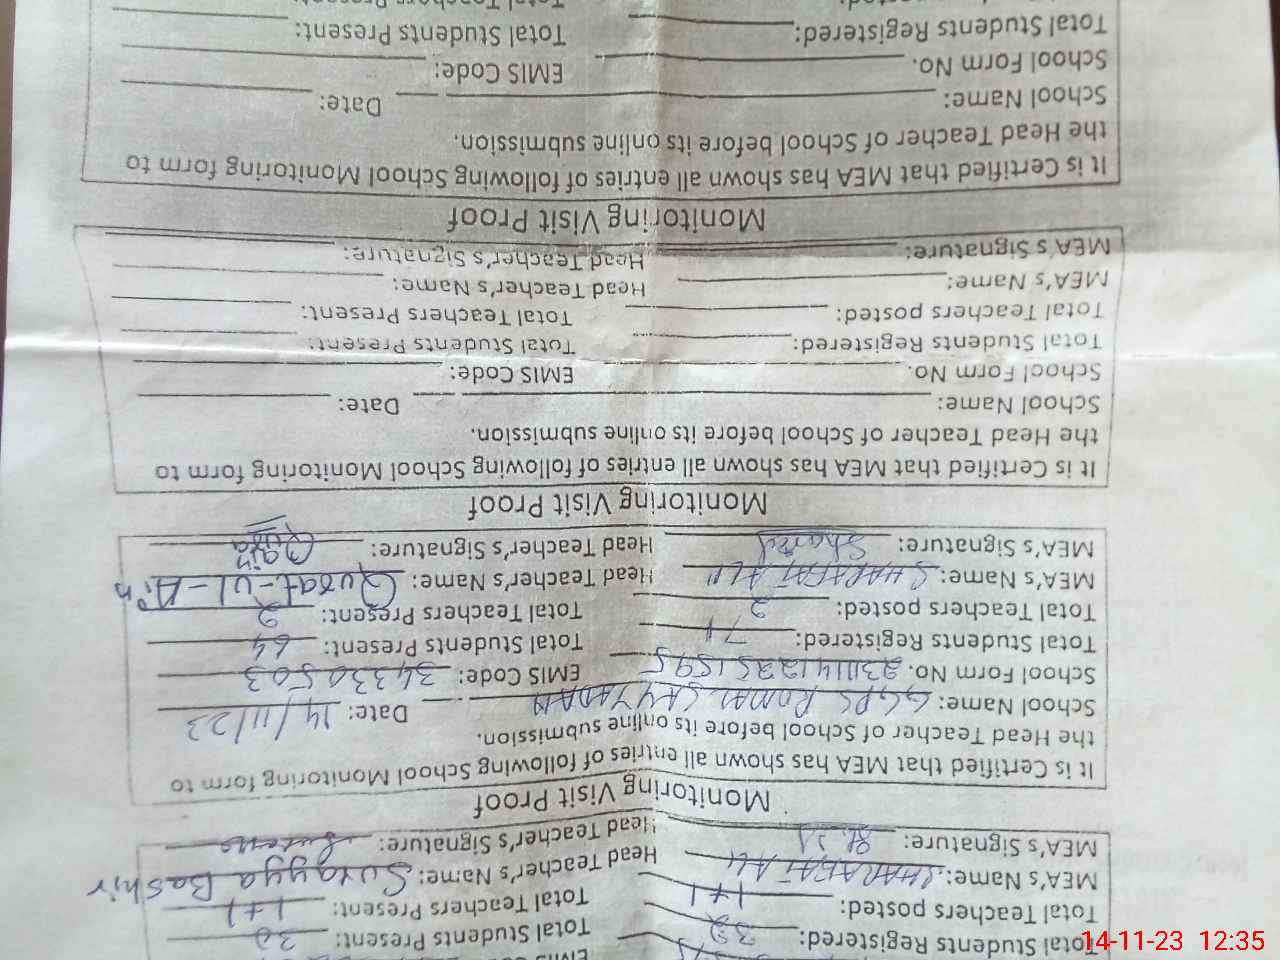 Total Students Registered: 32 Total Students Present: 30
Total Teachers posted: 1+1 Total Teachers Present: 1+1
MEA's Name: SHARAFAT ALI Head Teacher's Name: Surayya Bashir
MEA's Signature: Head Teacher's Signature:
Monitoring Visit Proof
It is Certified that MEA has shown all entries of following School Monitoring form to
the Head Teacher of School before its online submission.
School Name: GGPS ROMAL SAYYADAN Date: 14/11/23
School Form No. 23111412251595 EMIS Code: 34330503
Total Students Registered: 71 Total Students Present: 64
Total Teachers posted: 2 Total Teachers Present: 2
MEA's Name: SHARAFAT ALI Head Teacher's Name: Qurat-ul-Ain
MEA's Signature: Head Teacher's Signature:
Monitoring Visit Proof
It is Certified that MEA has shown all entries of following School Monitoring form to
the Head Teacher of School before its online submission.
School Name: Date:
School Form No. EMIS Code:
Total Students Registered: Total Students Present:
Total Teachers posted: Total Teachers Present:
MEA's Name: Head Teacher's Name:
MEA's Signature: Head Teacher's Signature:
Monitoring Visit Proof
It is Certified that MEA has shown all entries of following School Monitoring form to
the Head Teacher of School before its online submission.
School Name: Date:
School Form No. EMIS Code:
Total Students Registered: Total Students Present:
14-11-23 12:35